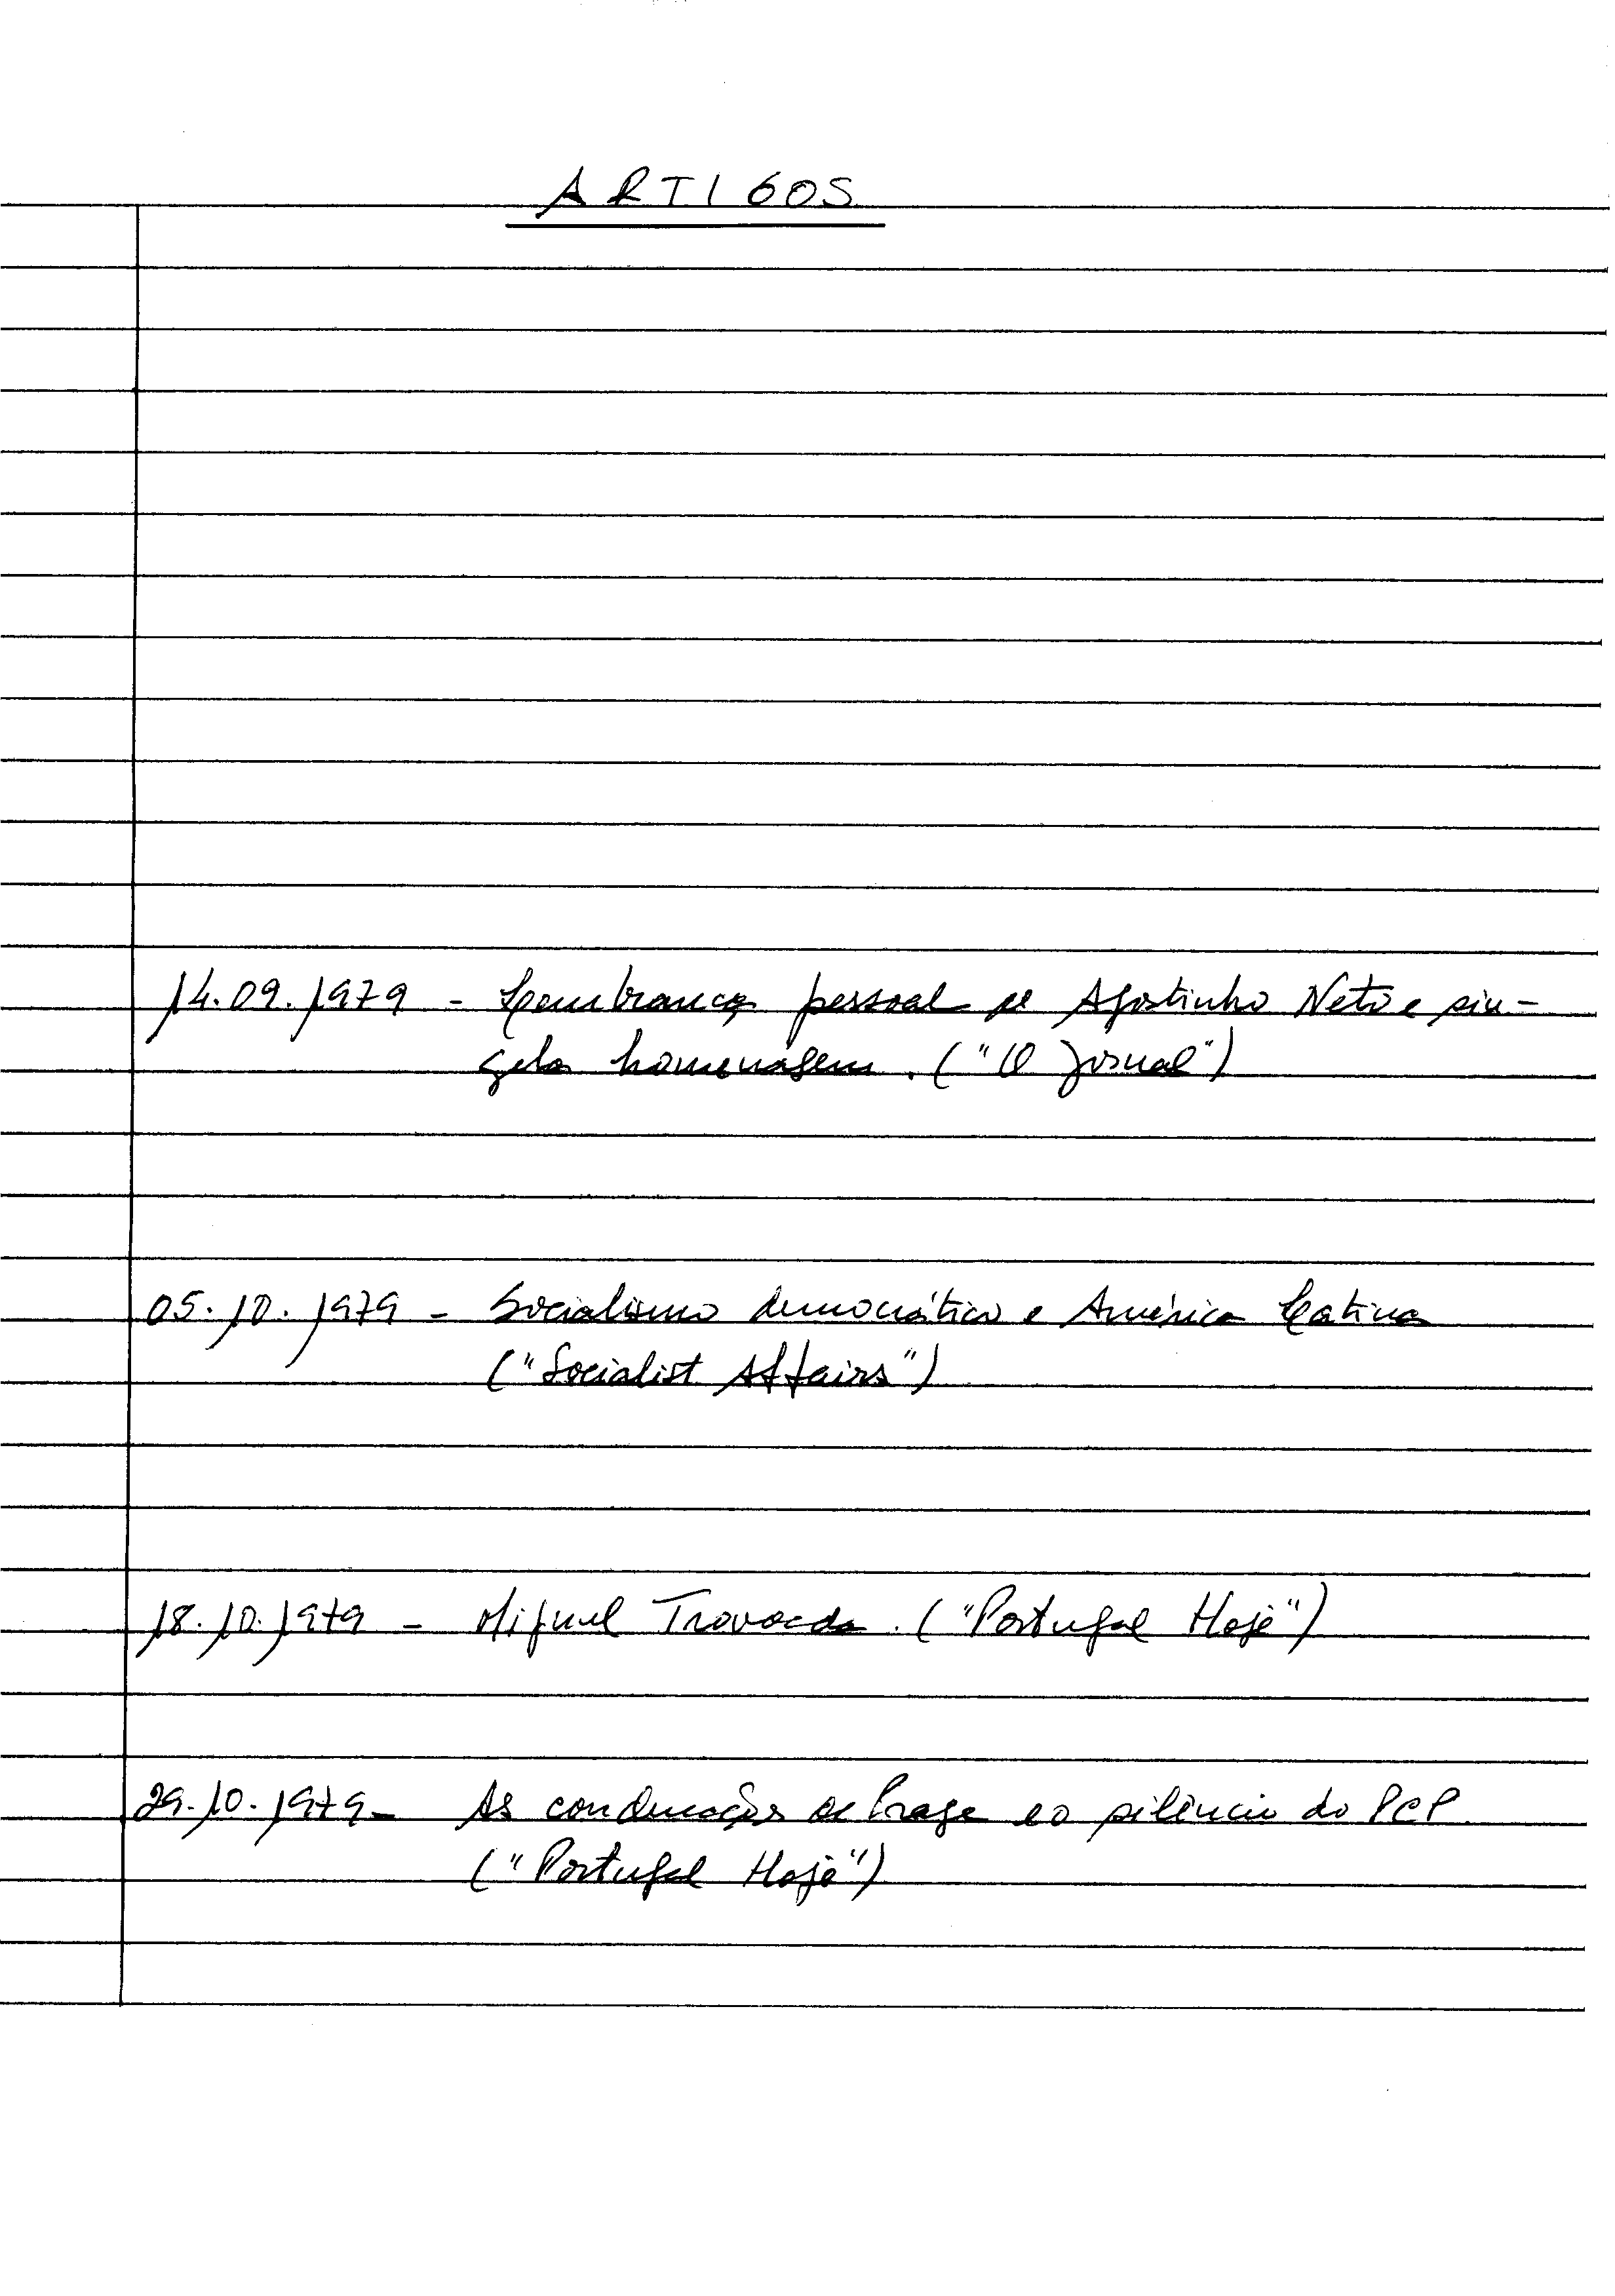 ARTIGOS
14.09.1979 - Lembrança pessoal de Agostinho Neto e sin-
gela homenagem. ("O Jornal")
05.10.1979 - Socialismo democrático e América Latina
("Socialist Affairs")
18.10.1979 - Miguel Trovoada. ("Portugal Hoje")
29.10.1979 - As condenações de Praga e o silêncio do PCP
("Portugal Hoje")